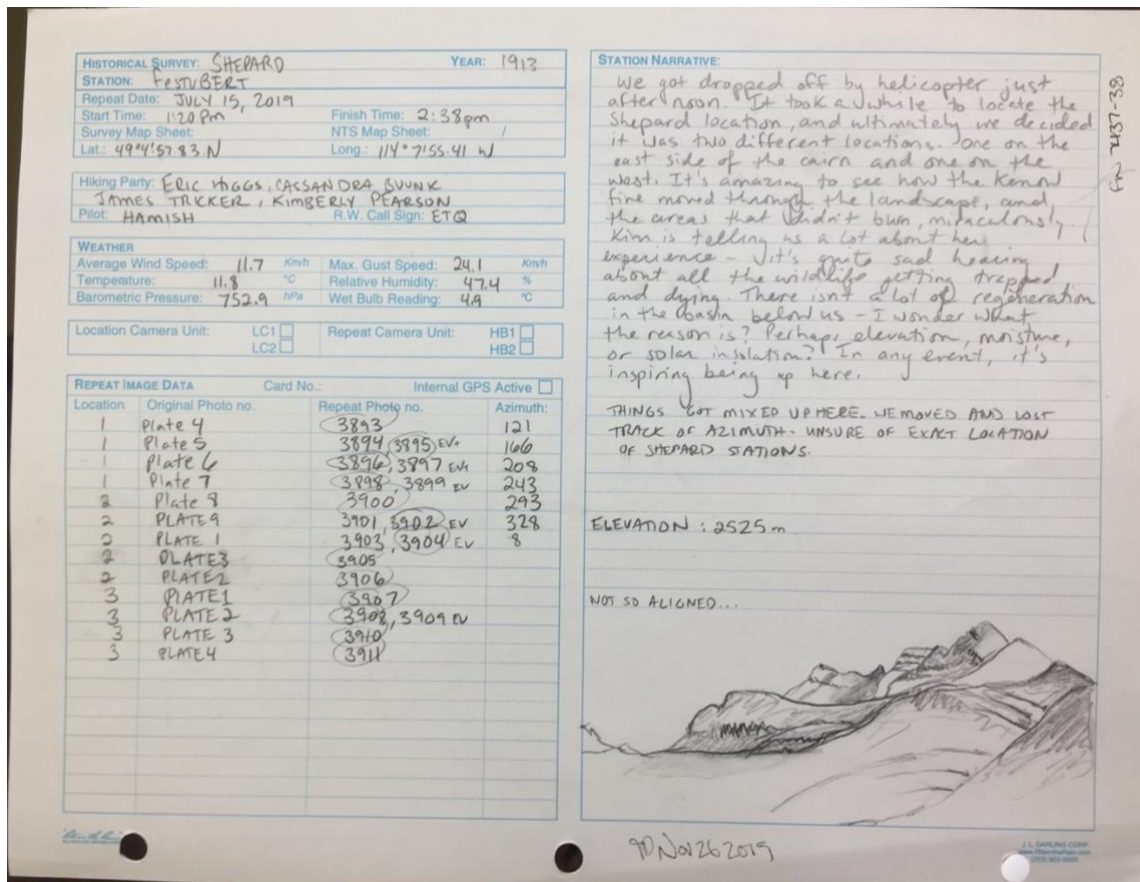 HISTORICAL SURVEY: SHEPARD YEAR: 1913
STATION: FESTUBERT
Repeat Date: JULY 15, 2019
Start Time: 1:20 Pm Finish Time: 2:38pm
Survey Map Sheet: NTS Map Sheet: /
Lat.: 49°4'57.83 N Long.: 114°7'55.41 W
Hiking Party: ERIC HIGGS, CASSANDRA BUUNK
JAMES TRICKER, KIMBERLY PEARSON
Pilot: HAMISH R.W. Call Sign: ETQ
WEATHER
Average Wind Speed: 11.7 Km/h Max. Gust Speed: 24.1 Km/h
Temperature: 11.8 °C Relative Humidity: 47.4 %
Barometric Pressure: 752.9 hPa Wet Bulb Reading: 4.9 °C
Location Camera Unit: LC1 Repeat Camera Unit: HB1
LC2 HB2
REPEAT IMAGE DATA Card No.: Internal GPS Active
Location Original Photo no. Repeat Photo no. Azimuth:
1 Plate 4 3893 121
1 Plate 5 3894, 3895 EV+ 166
1 Plate 6 3896, 3897 EV+ 208
1 Plate 7 3898, 3899 EV 243
2 Plate 8 3900 293
2 PLATE 9 3901, 3902 EV 328
2 PLATE 1 3903, 3904 EV 8
2 PLATE3 3905
2 PLATE2 3906
3 PLATE1 3907
3 PLATE 2 3908, 3909 EV
3 PLATE 3 3910
3 PLATE4 3911
STATION NARRATIVE:
We got dropped off by helicopter just
after noon. It took a while to locate the
Shepard location, and ultimately we decided
it was two different locations. One on the
east side of the cairn and one on the
west. It's amazing to see how the Kenow
fire moved through the landscape, and,
the areas that didn't burn, miraculously.
Kim is telling us a lot about her
experience - it's quite sad hearing
about all the wildlife getting trapped
and dying. There isn't a lot of regeneration
in the basin below us - I wonder what
the reason is? Perhaps elevation, moisture,
or solar insolation? In any event, it's
inspiring being up here.
THINGS GOT MIXED UP HERE. WE MOVED AND LOST
TRACK OF AZIMUTH. UNSURE OF EXACT LOCATION
OF SHEPARD STATIONS.
ELEVATION : 2525 m
NOT SO ALIGNED...
7437-38
Nov 26 2019
J. L. DARLING CORP